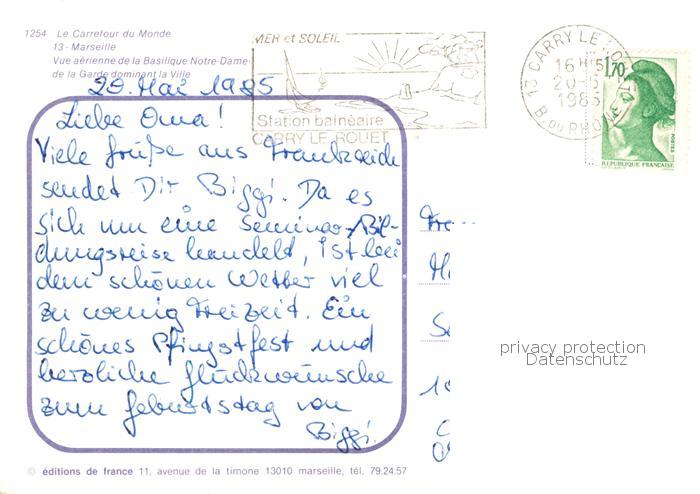 1254 Le Carrefour du Monde
13 - Marseille
Vue aérienne de la Basilique Notre-Dame-
de la Garde dominant la Ville
MER et SOLEIL
Station balnéaire
CARRY LE ROUET
13 CARRY LE ROUET
16 H 15
20-5
1985
B. DU RHONE
1,70
POSTES
REPUBLIQUE FRANÇAISE
20. Mai 1985
Liebe Oma!
Viele Grüße aus Frankreich
sendet Dir Biggi. Da es
sich um eine Seminar-Bil-
dungsreise handelt, ist bei
dem schönen Wetter viel
zu wenig Freizeit. Ein
schönes Pfingstfest und
herzliche Glückwünsche
zum Geburtstag von
Biggi.
privacy protection
Datenschutz
© éditions de france 11, avenue de la timone 13010 marseille, tél. 79.24.57